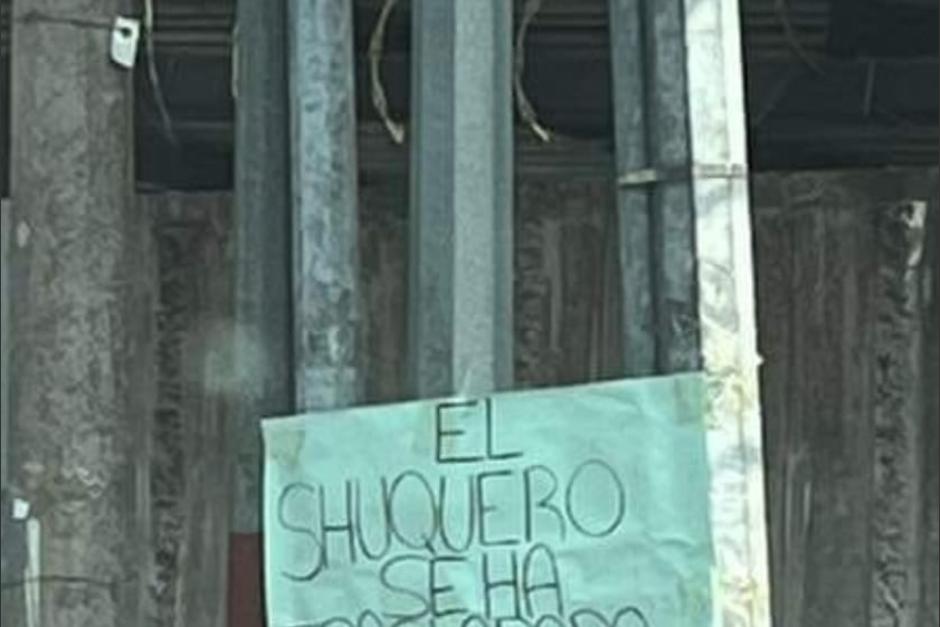 EL
SHUQUERO
SE HA